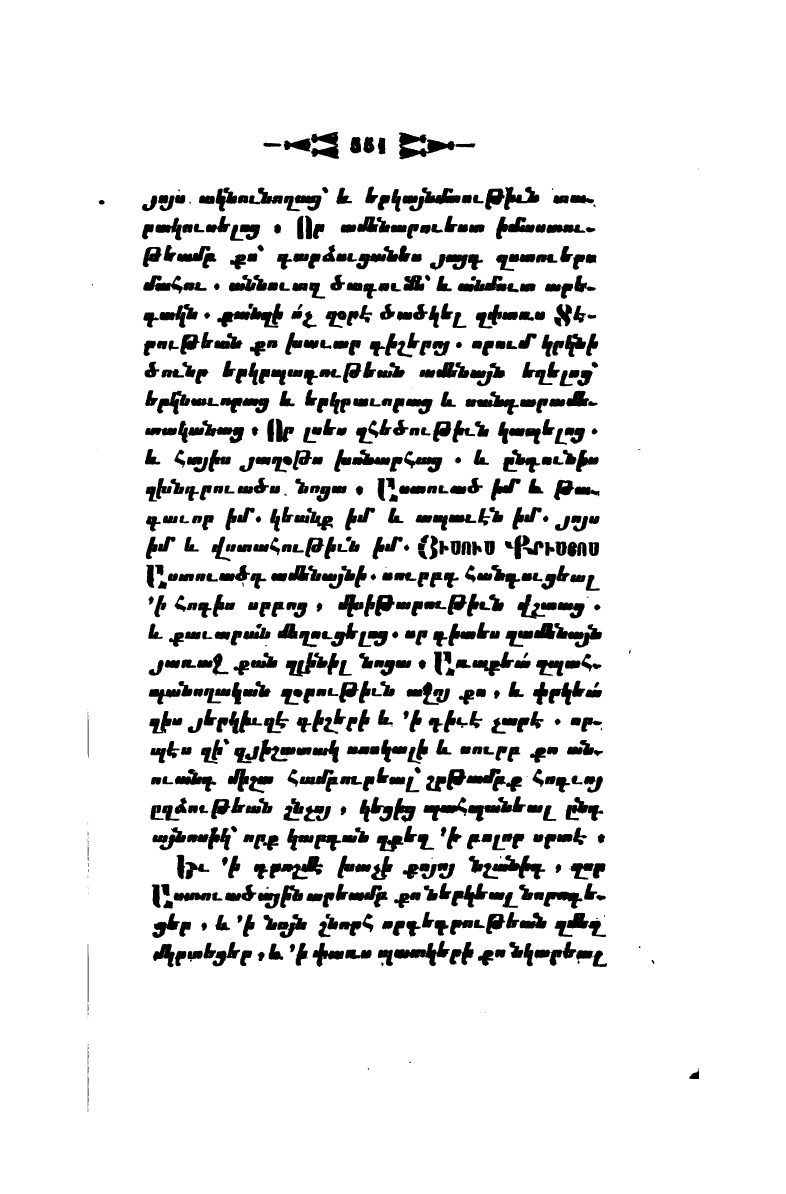 551
յոյս ակնունողաց՝ և երկայնմտութիւն տա֊
րակուսելոց ։ Որ ամենարուեստ իմաստու֊
թեամբ քո՝ դարձուցանես յայգ զստուերս
մահու . աննուաղ ծագումն՝ և անմուտ արե֊
գակն . քանզի ո՛չ զօրէ ծածկել զփառս Տէ֊
րութեան քո խաւար գիշերոյ . որում կրկնի
ծունր երկրպագութեան ամենայն եղելոց՝
երկնաւորաց և երկրաւորաց և սանդարամե֊
տականաց ։ Որ լսես զհեծութիւն կապելոց .
և հայիս յաղօթս խոնարհաց . և ընդունիս
զխնդրուածս նոցա ։ Աստուած իմ և թա֊
գաւոր իմ . կեանք իմ և ապաւէն իմ . յոյս
իմ և վստահութիւն իմ . ՅԻՍՈՒՍ ՔՐԻՍՏՈՍ
Աստուածդ ամենայնի . սուրբդ հանգուցեալ
՚ի հոգիս սրբոց , մխիթարութիւն վշտաց .
և քաւարան մեղուցելոց . որ գիտես զամենայն
յառաջ քան զլինիլ նոցա ։ Առաքեա՛ զպահ֊
պանողական զօրութիւն աջոյ քո , և փրկեա՛
զիս յերկիւղէ գիշերի և ՚ի դիւէ չարէ . որ֊
պէս զի՝ զյիշատակ սոսկալի և սուրբ քո ան֊
ուանդ միշտ համբուրեալ՝ շրթամբք հոգւոյ
ըղձութեան շնչոյ , կեցից պահպանեալ ընդ
այնոսիկ՝ որք կարդան զքեզ ՚ի բոլոր սրտէ ։
Եւ ՚ի դրոշմէ խաչի քոյոյ նշանիդ , զոր
Աստուածային արեամբ քո ներկեալ նորոգե֊
ցեր , և ՚ի նոյն շնորհ որդեգրութեան զմեզ
մկրտեցեր , և ՚ի փառս պատկերի քո նկարեալ